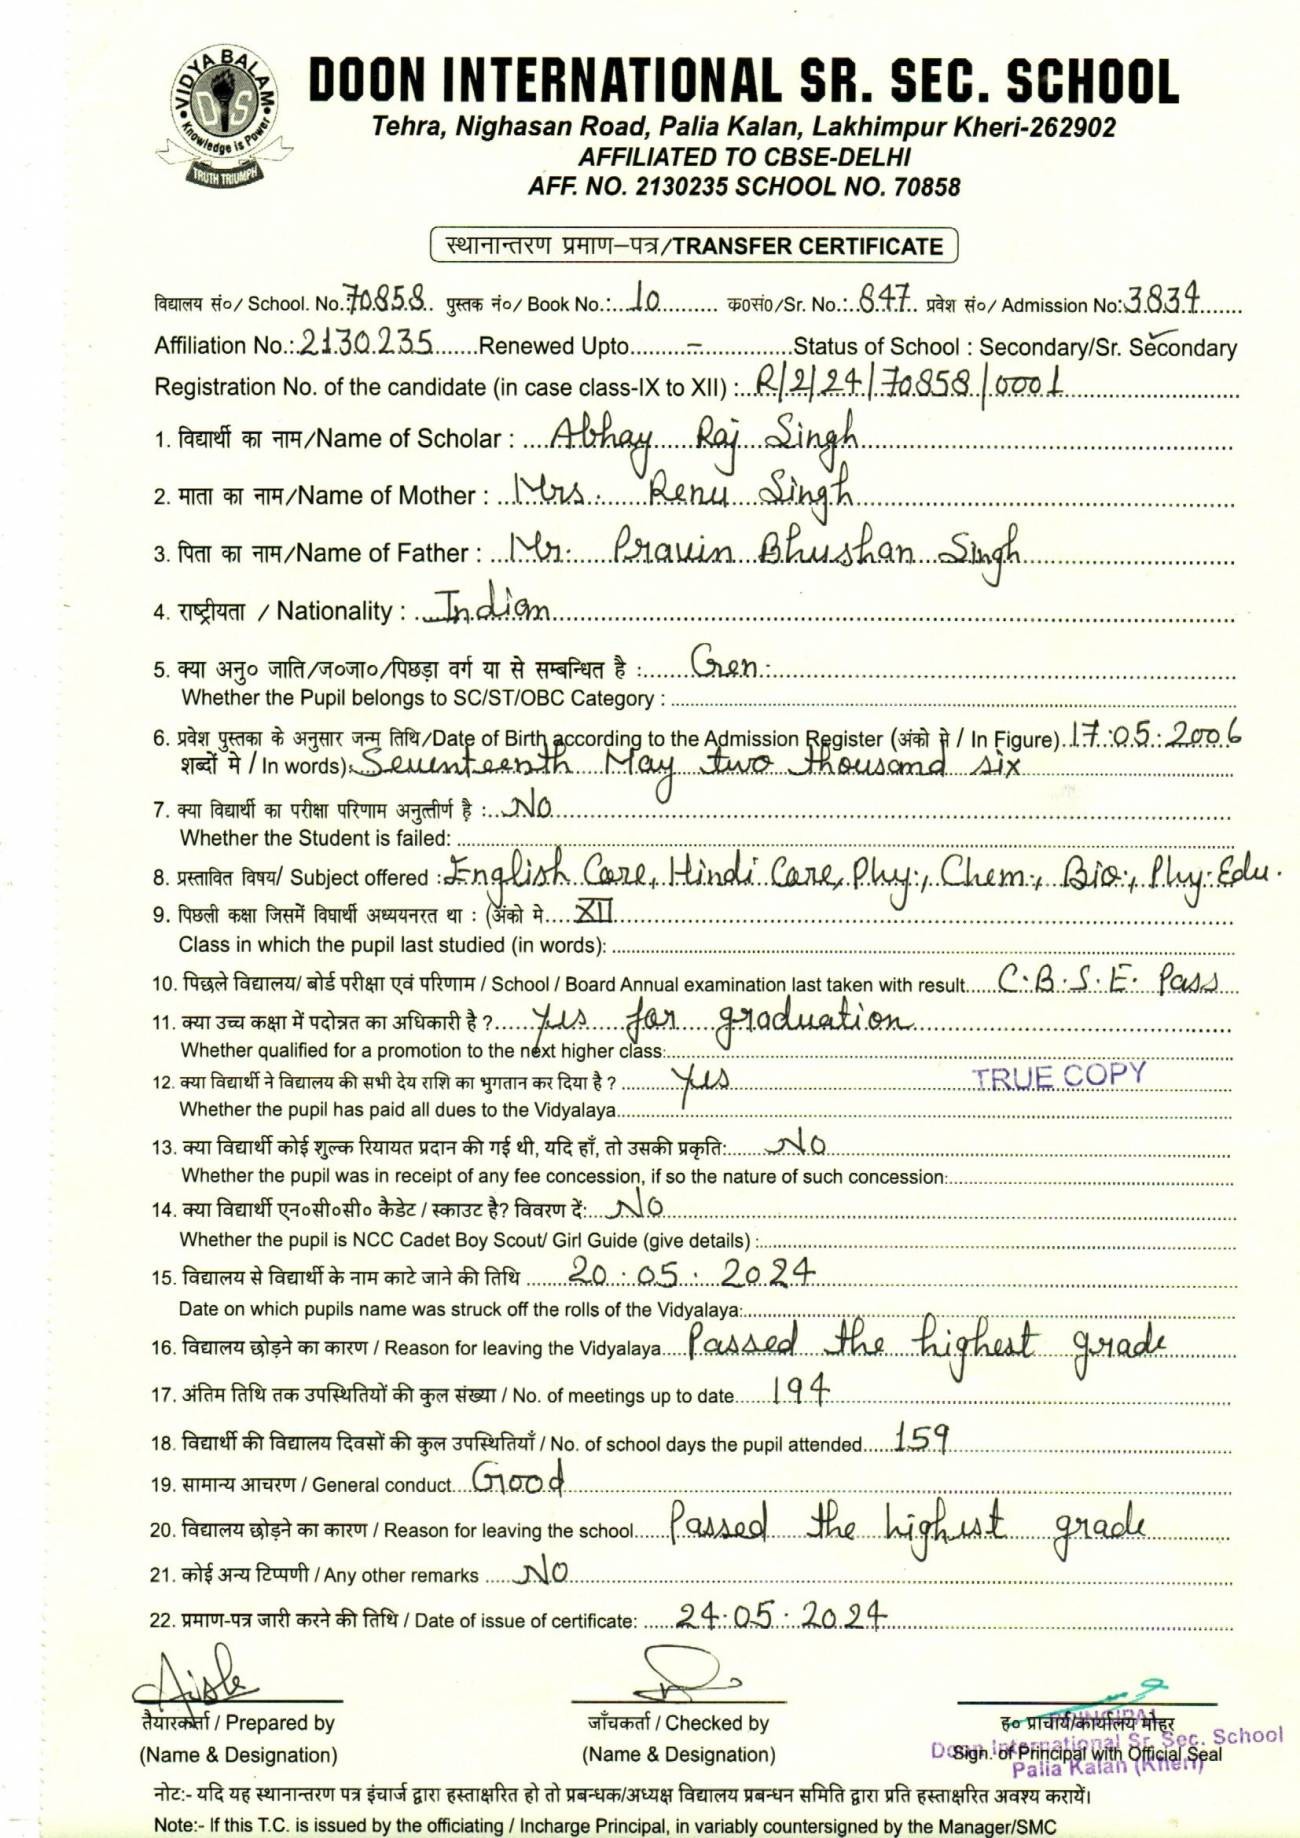 VIDYA BALAM
DIS
Knowledge is Power
TRUTH TRIUMPH
DOON INTERNATIONAL SR. SEC. SCHOOL
Tehra, Nighasan Road, Palia Kalan, Lakhimpur Kheri-262902
AFFILIATED TO CBSE-DELHI
AFF. NO. 2130235 SCHOOL NO. 70858
स्थानान्तरण प्रमाण–पत्र/TRANSFER CERTIFICATE
विद्यालय सं०/ School. No.:70858.. पुस्तक नं०/ Book No.:...10.......... क०सं०/Sr. No.:..847.. प्रवेश सं०/ Admission No:3834.......
Affiliation No.:.2130235.......Renewed Upto........–..............Status of School : Secondary/Sr. Secondary ✓
Registration No. of the candidate (in case class-IX to XII) :..R/2/24/70858/0001..........
1. विद्यार्थी का नाम/Name of Scholar : ...Abhay Raj Singh..........
2. माता का नाम/Name of Mother : ..Mrs. Renu Singh..........
3. पिता का नाम/Name of Father : ..Mr. Pravin Bhushan Singh..........
4. राष्ट्रीयता / Nationality : ..Indian..........
5. क्या अनु० जाति/ज०जा०/पिछड़ा वर्ग या से सम्बन्धित है :.......Gen...........
Whether the Pupil belongs to SC/ST/OBC Category : ..........
6. प्रवेश पुस्तका के अनुसार जन्म तिथि/Date of Birth according to the Admission Register (अंको मे / In Figure)..17.05.2006
शब्दों मे / In words):.Seventeenth May two thousand six
7. क्या विद्यार्थी का परीक्षा परिणाम अनुत्तीर्ण है :...No..........
Whether the Student is failed: ..........
8. प्रस्तावित विषय/ Subject offered :.English Core, Hindi Core, Phy., Chem., Bio., Phy. Edu.
9. पिछली कक्षा जिसमें विघार्थी अध्ययनरत था : (अंको मे....XII..........
Class in which the pupil last studied (in words): ..........
10. पिछले विद्यालय/ बोर्ड परीक्षा एवं परिणाम / School / Board Annual examination last taken with result.....C.B.S.E. Pass
11. क्या उच्च कक्षा में पदोन्नत का अधिकारी है ?.....Yes for graduation..........
Whether qualified for a promotion to the next higher class:..........
12. क्या विद्यार्थी ने विद्यालय की सभी देय राशि का भुगतान कर दिया है ? .........Yes..........
TRUE COPY
Whether the pupil has paid all dues to the Vidyalaya..........
13. क्या विद्यार्थी कोई शुल्क रियायत प्रदान की गई थी, यदि हाँ, तो उसकी प्रकृति:......No..........
Whether the pupil was in receipt of any fee concession, if so the nature of such concession:..........
14. क्या विद्यार्थी एन०सी०सी० कैडेट / स्काउट है? विवरण दें:...No..........
Whether the pupil is NCC Cadet Boy Scout/ Girl Guide (give details) :..........
15. विद्यालय से विद्यार्थी के नाम काटे जाने की तिथि ......20.05.2024..........
Date on which pupils name was struck off the rolls of the Vidyalaya:..........
16. विद्यालय छोड़ने का कारण / Reason for leaving the Vidyalaya....Passed the highest grade
17. अंतिम तिथि तक उपस्थितियों की कुल संख्या / No. of meetings up to date......194..........
18. विद्यार्थी की विद्यालय दिवसों की कुल उपस्थितियाँ / No. of school days the pupil attended.....159..........
19. सामान्य आचरण / General conduct...Good..........
20. विद्यालय छोड़ने का कारण / Reason for leaving the school.....Passed the highest grade
21. कोई अन्य टिप्पणी / Any other remarks .....No..........
22. प्रमाण-पत्र जारी करने की तिथि / Date of issue of certificate: .....24.05.2024..........
तैयारकर्ता / Prepared by जाँचकर्ता / Checked by ह० प्राचार्य/कार्यालय मोहर
PRINCIPAL
(Name & Designation) (Name & Designation) Sign. of Principal with Official Seal
Doon International Sr. Sec. School
Palia Kalan (Kheri)
नोट:- यदि यह स्थानान्तरण पत्र इंचार्ज द्वारा हस्ताक्षरित हो तो प्रबन्धक/अध्यक्ष विद्यालय प्रबन्धन समिति द्वारा प्रति हस्ताक्षरित अवश्य करायें।
Note:- If this T.C. is issued by the officiating / Incharge Principal, in variably countersigned by the Manager/SMC